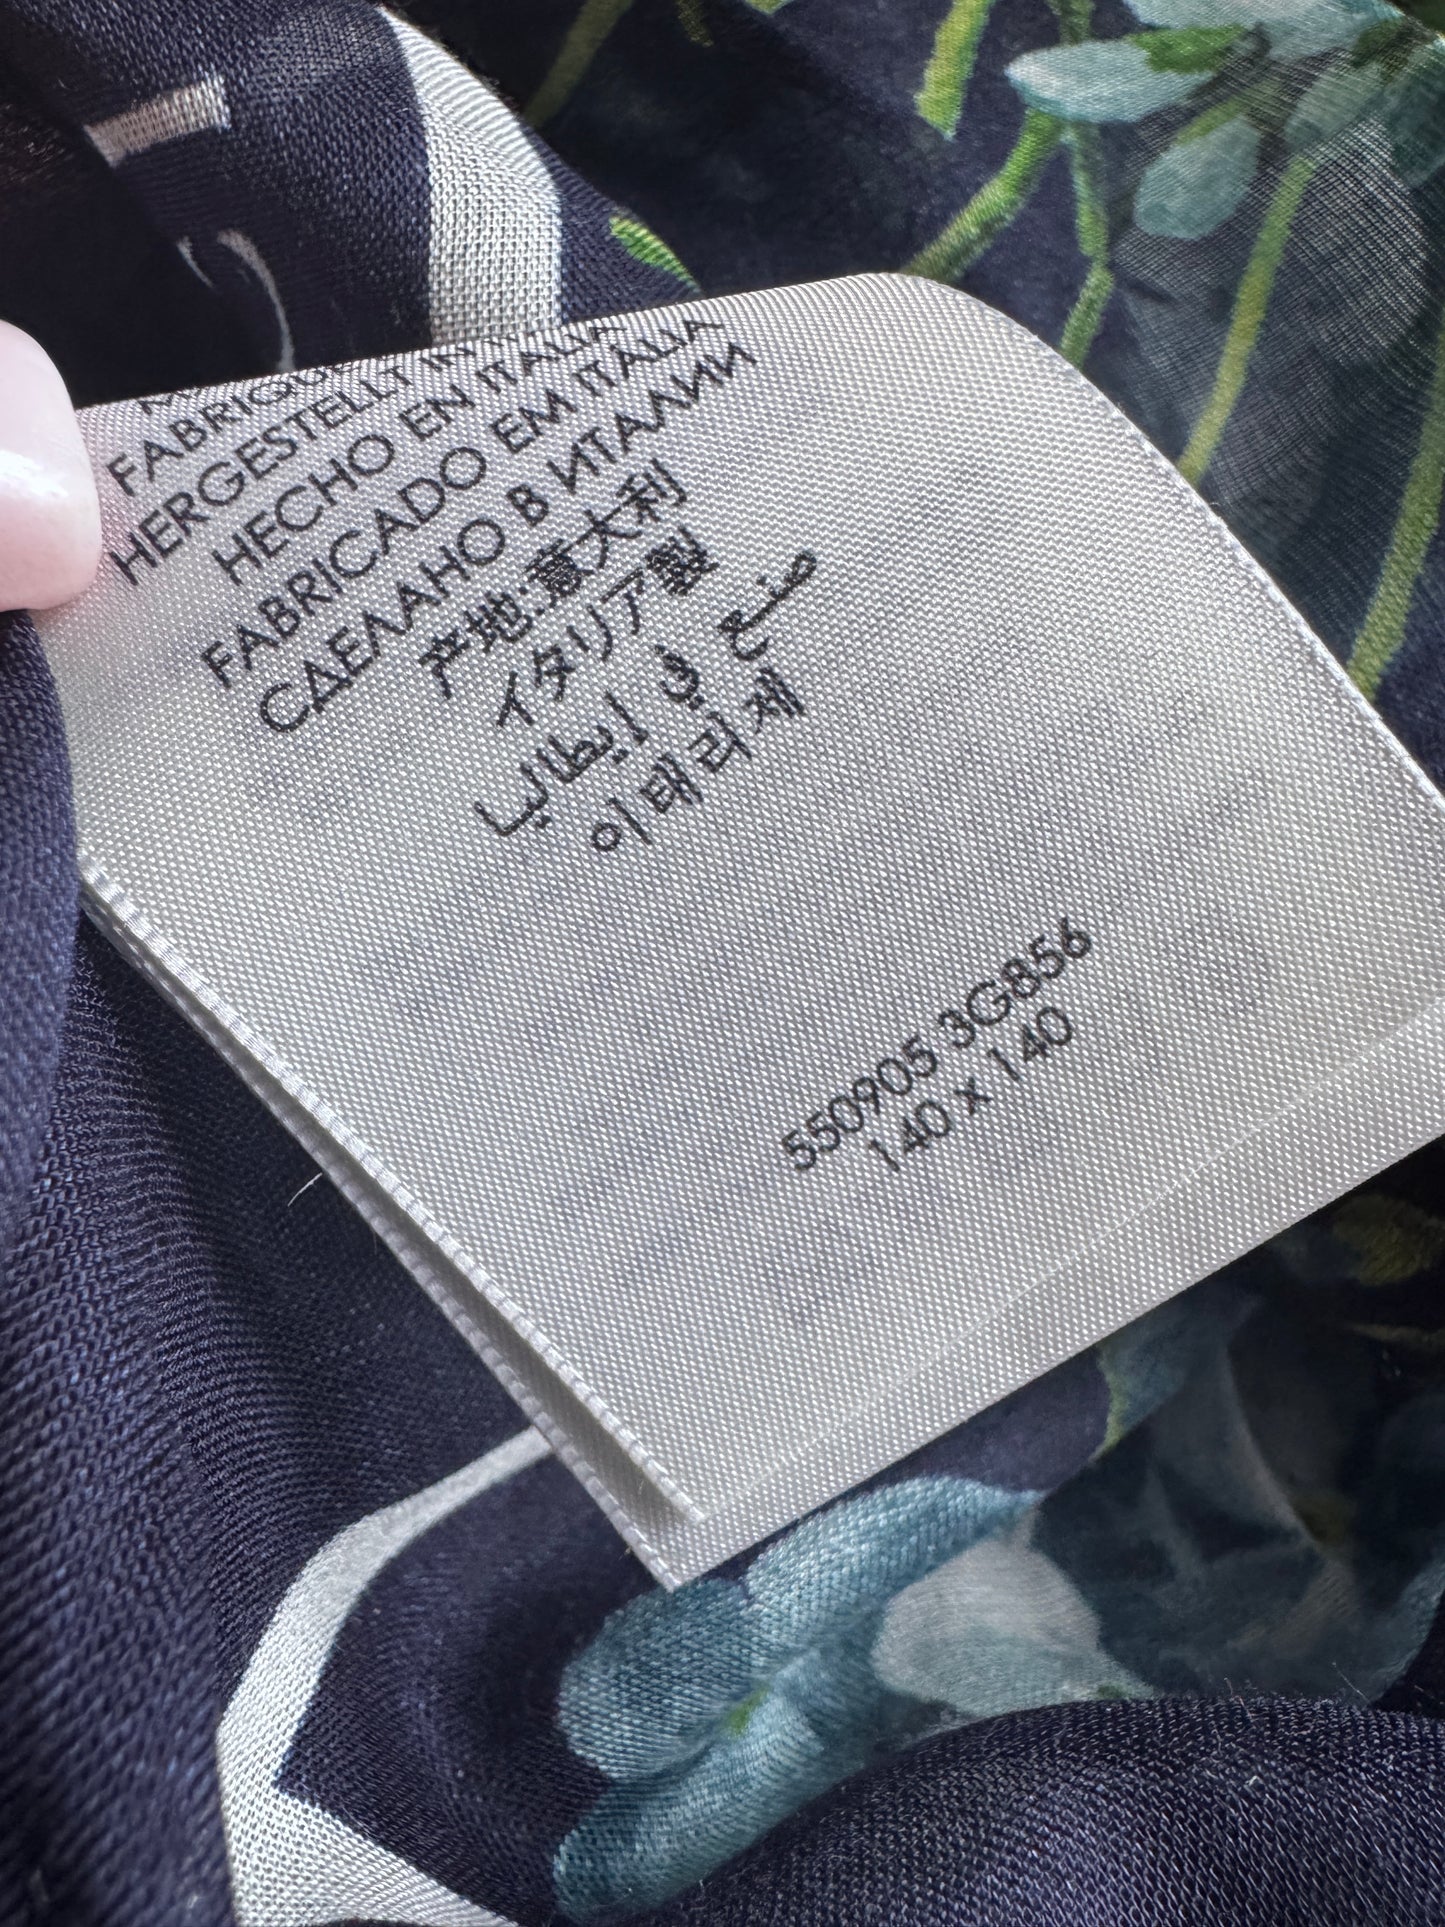 FABRIQUÉ
HERGESTELLT IN
HECHO EN ITALIA
FABRICADO EM ITÁLIA
СДЕЛАНО В ИТАЛИИ
产地:意大利
イタリア製
صنع في ايطاليا
이태리제
550905 3G856
140 x 140